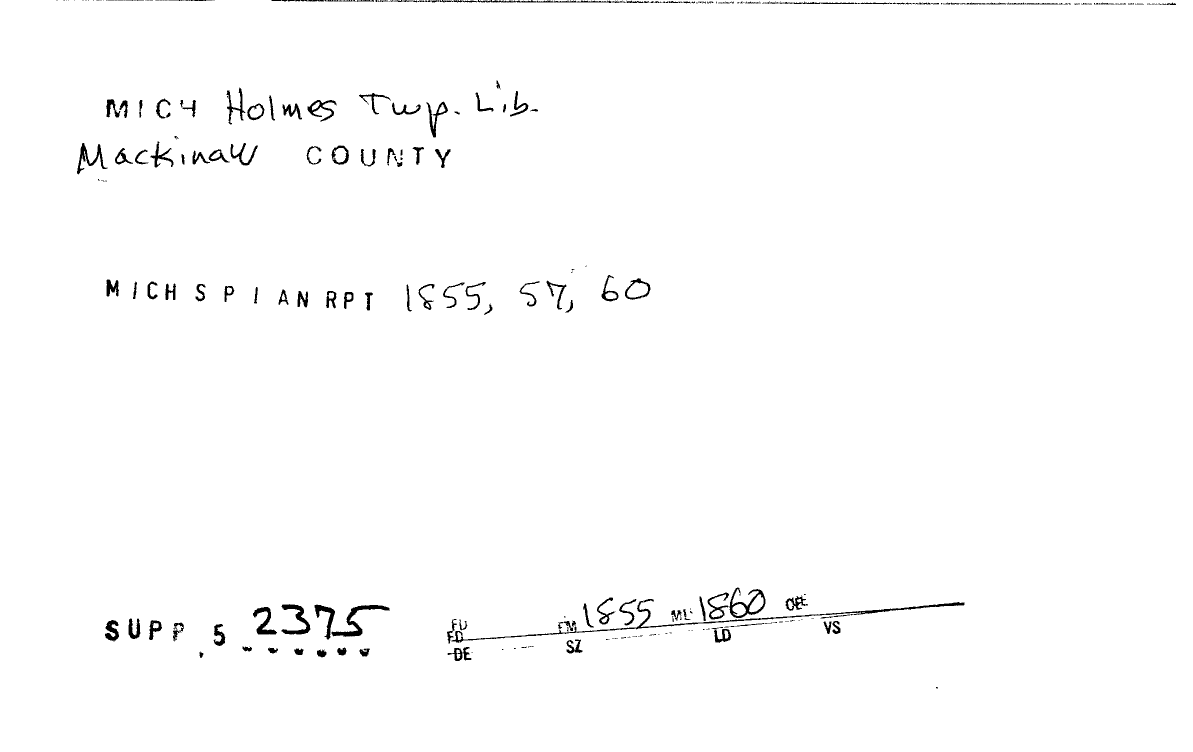 MICH Holmes Twp. Lib.
Mackinaw COUNTY
MICH S P I AN RPT 1855, 57, 60
SUPP. 5 2375
FU
FD FM 1855 ML 1860
DE SZ LD VS